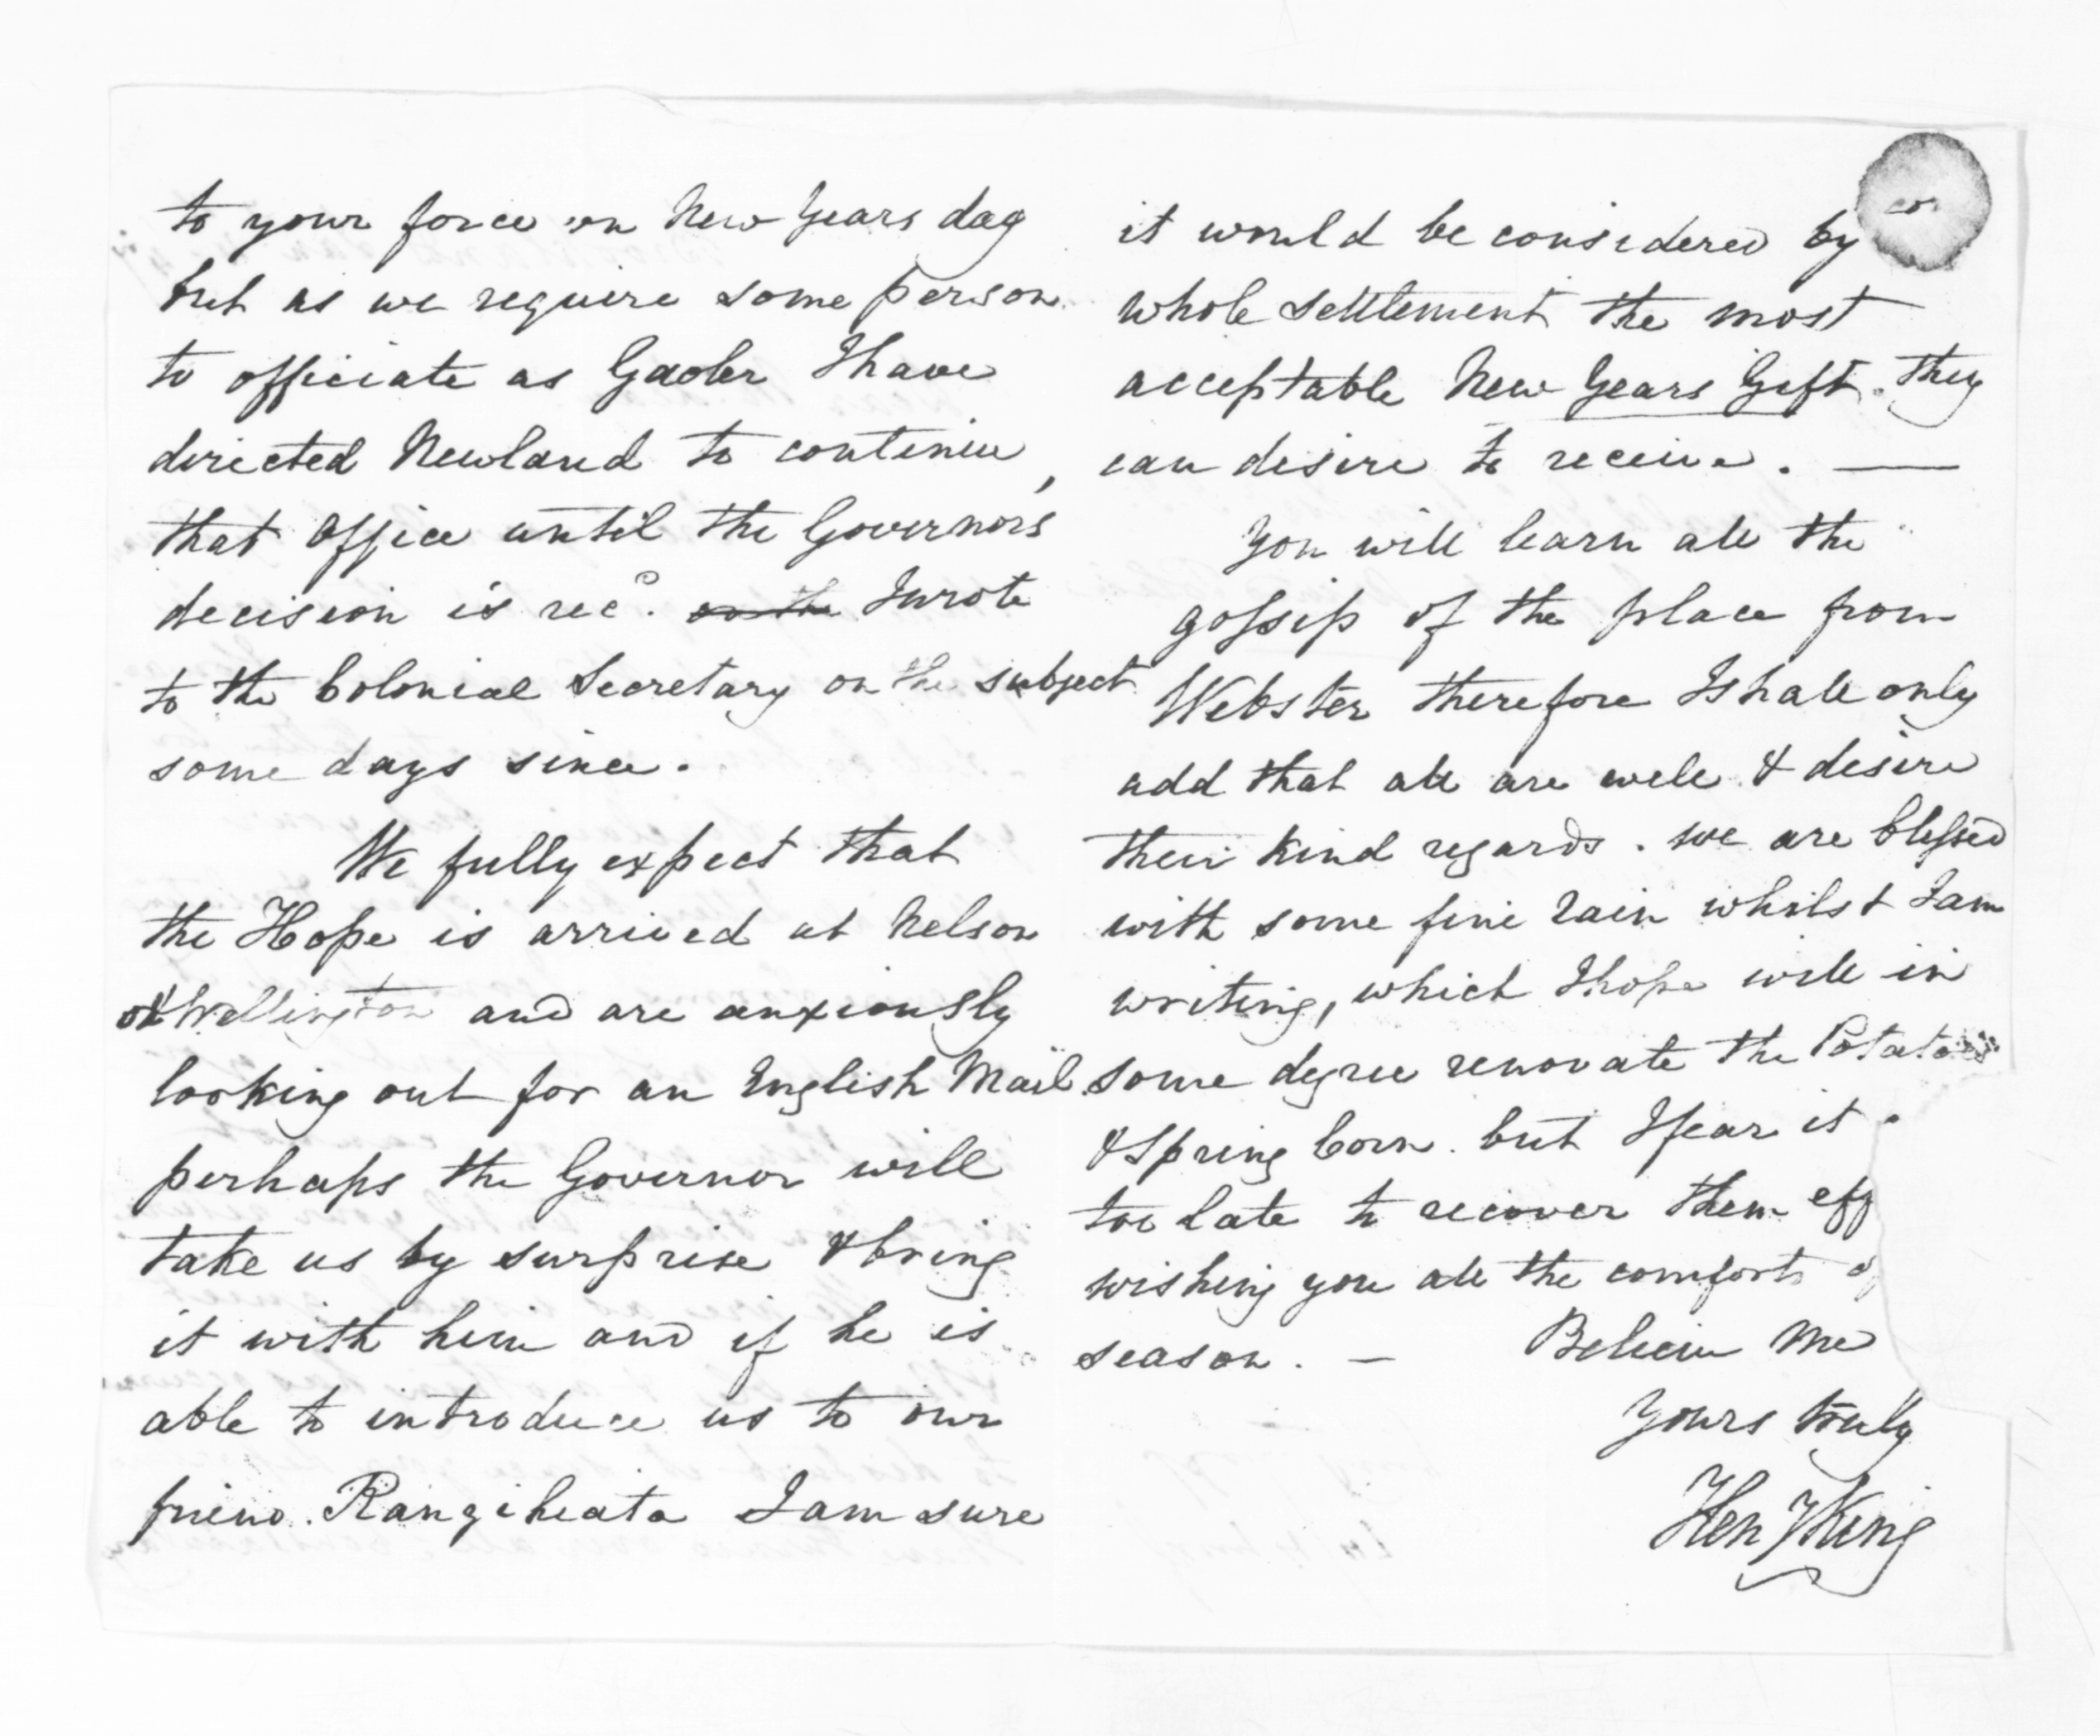 to your force on New Years day
but as we require some person
to officiate as Gaoler I have
directed Newland to continue,
that Office until the Governors
decision is rec^d. on the I wrote
to the Colonial Secretary on the subject
some days since.
We fully expect that
the Hope is arrived at Nelson
or Wellington and are anxiously
looking out for an English Mail.
perhaps the Governor will
take us by surprise & bring
it with him and if he is
able to introduce us to our
friend. Rangiheata I am sure
it would be considered by
whole settlement the most
acceptable New Years Gift. they
can desire to receive. —
You will learn all the
gossip of the place from
Webster therefore I shall only
add that all are well & desire
their kind regards. we are blessed
with some fine rain whilst I am
writing, which I hope will in
some degree renovate the Potatoes
& Spring Corn. but I fear it
too late to recover them eff
wishing you all the comforts
season. — Believe me
Yours truly
Hen^y King